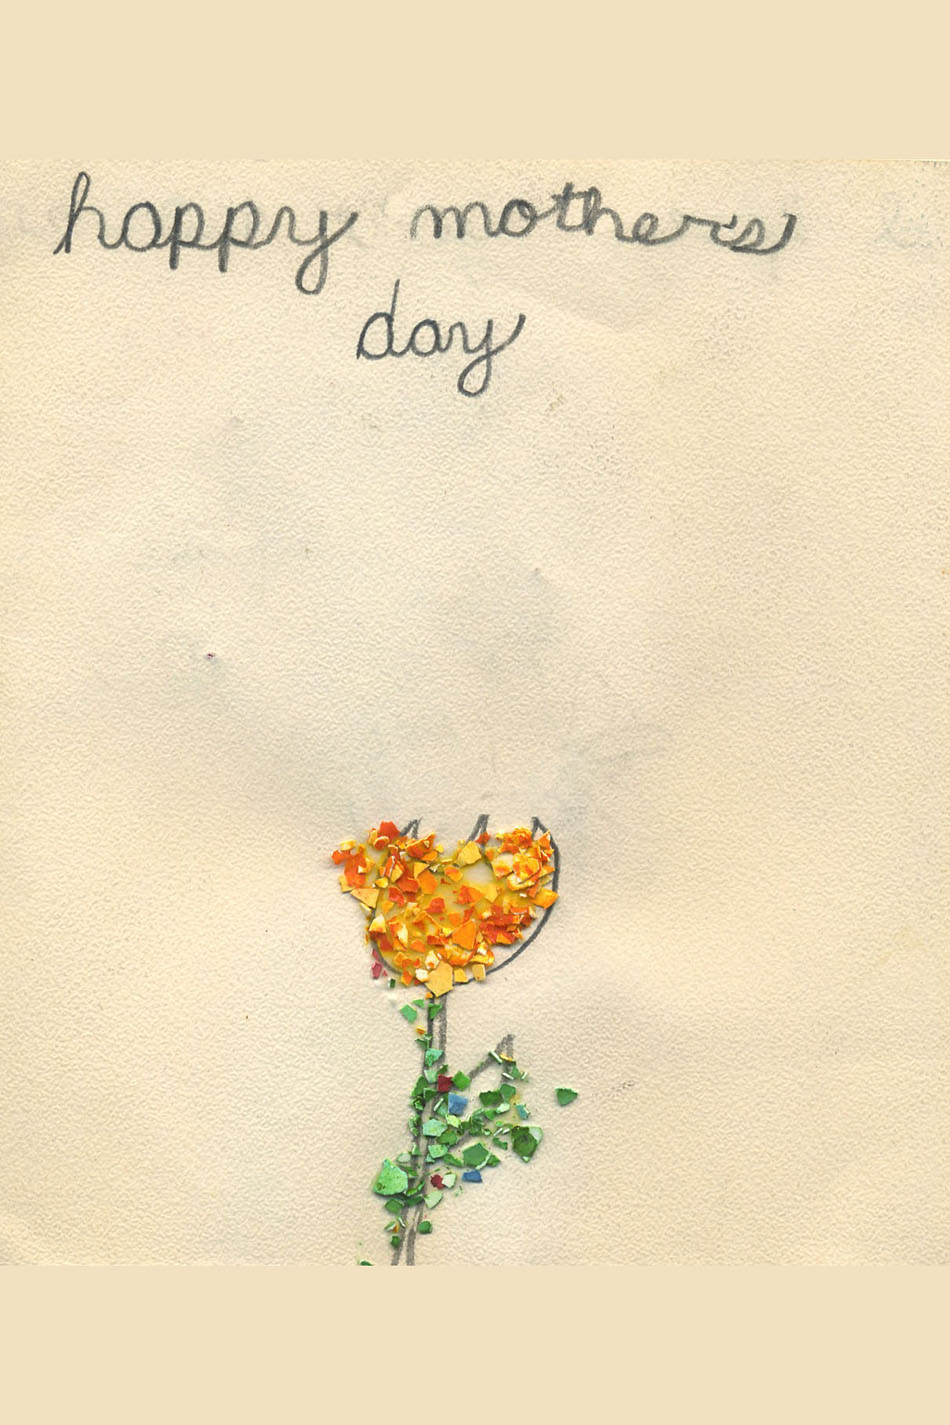 happy mother's
day